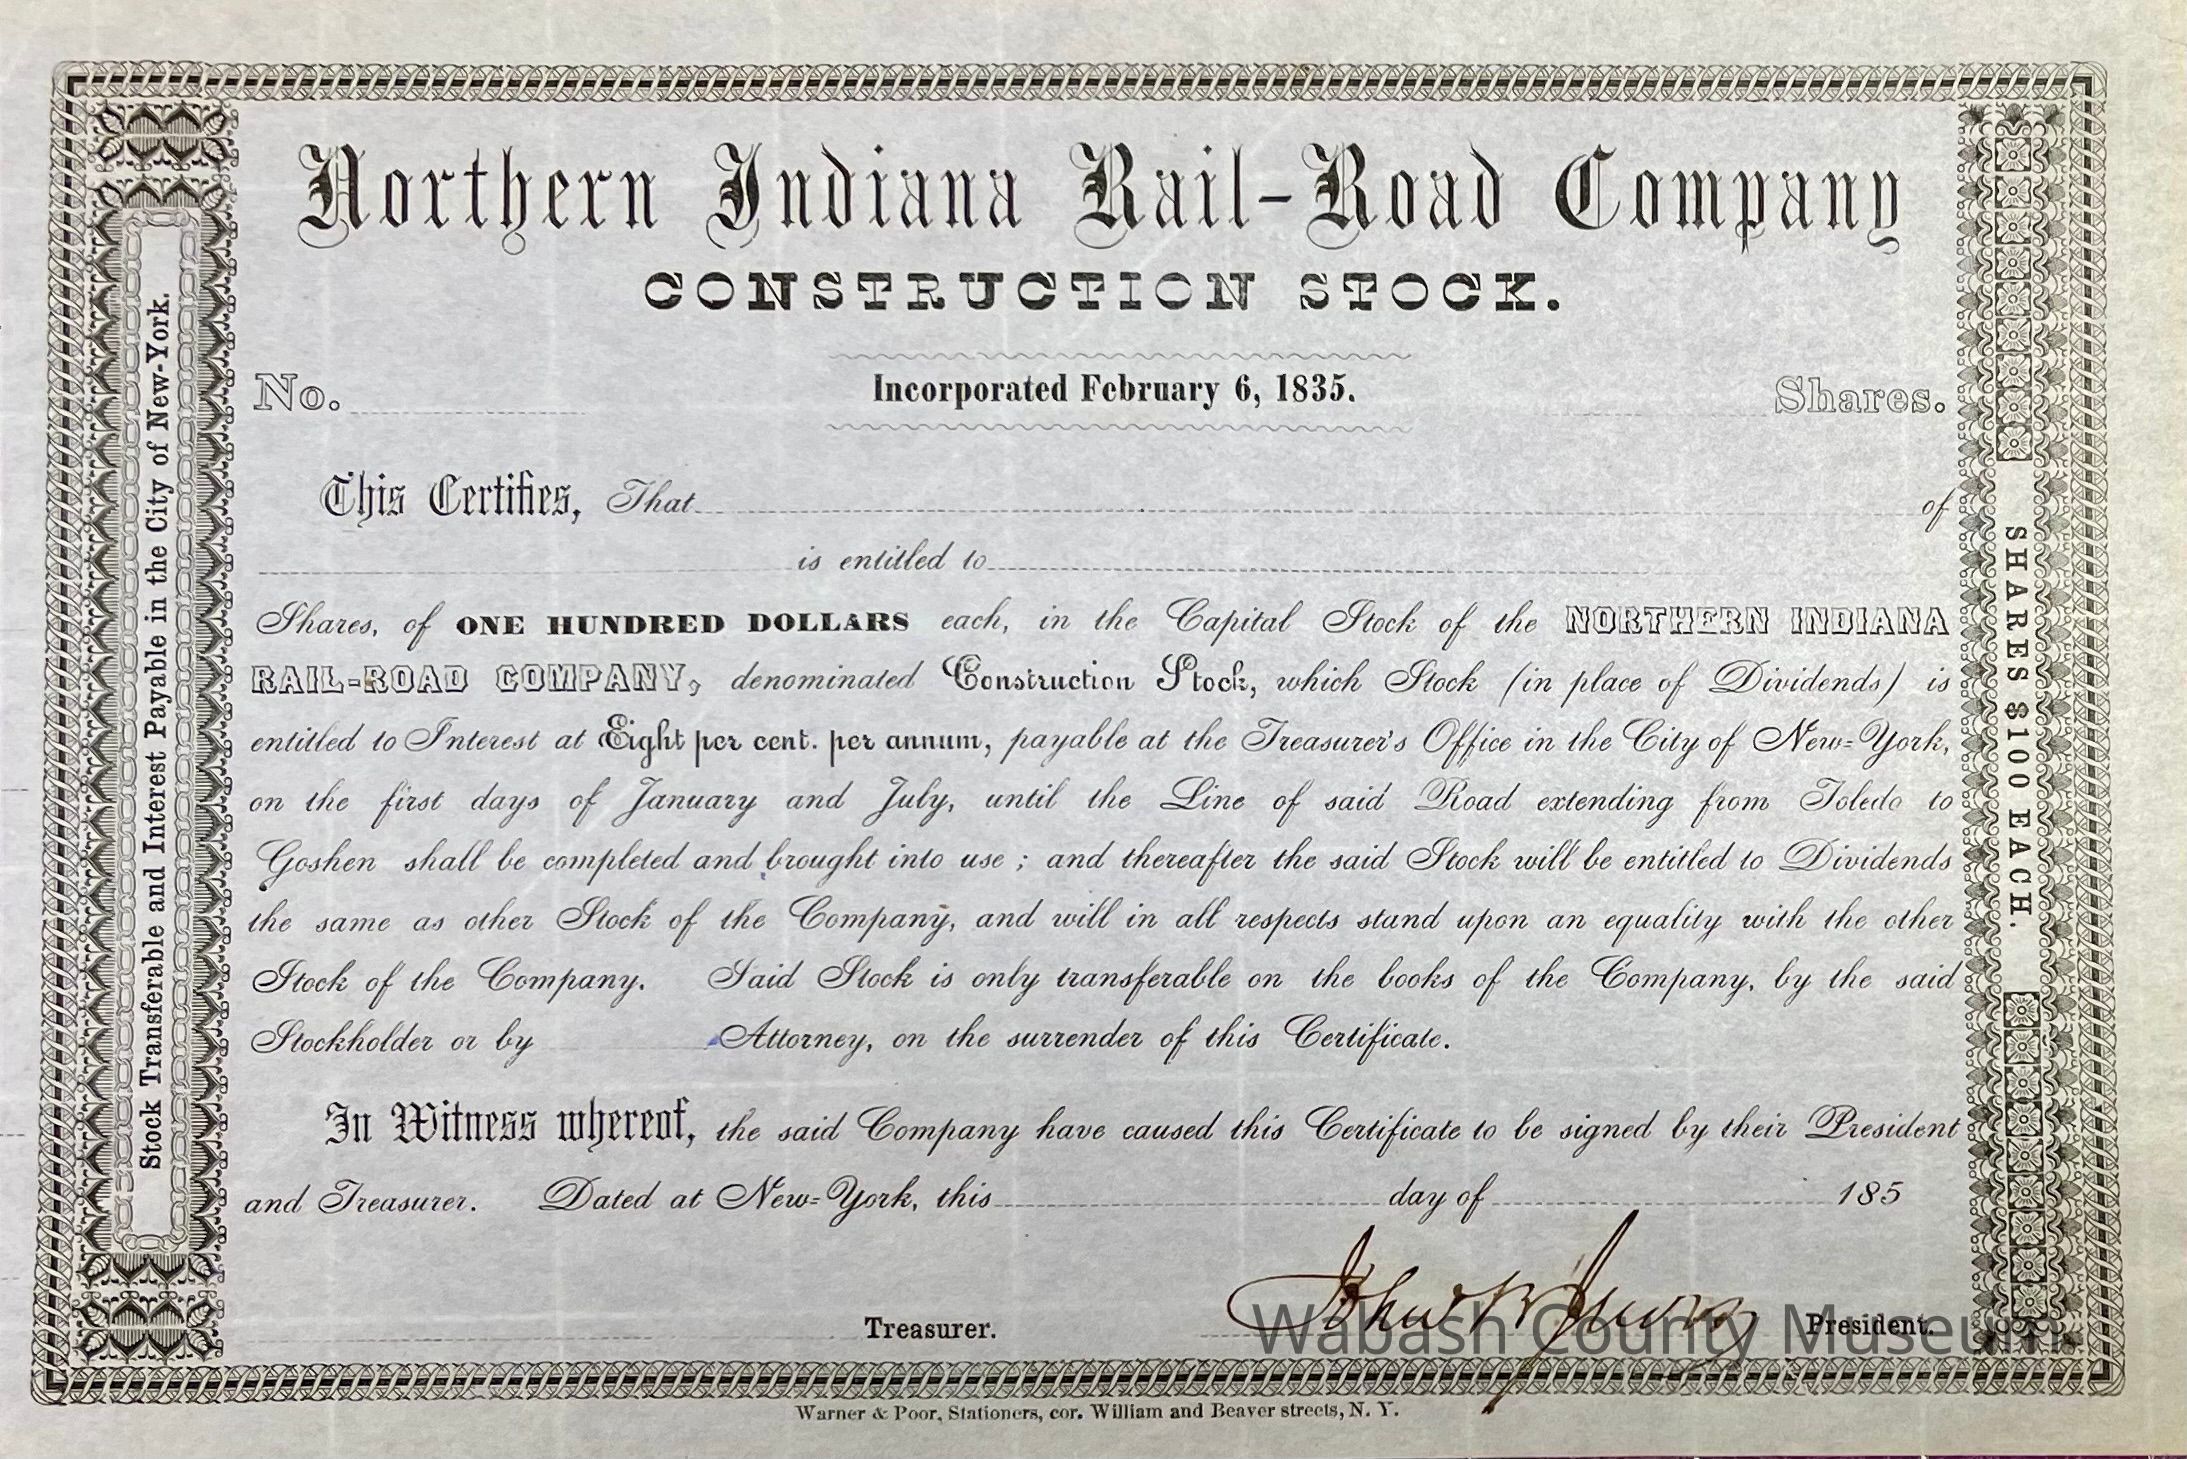 Northern Indiana Rail-Road Company
CONSTRUCTION STOCK.
No.
Incorporated February 6, 1835.
Shares.
This Certifies, That of
is entitled to
Shares, of ONE HUNDRED DOLLARS each, in the Capital Stock of the NORTHERN INDIANA
RAIL-ROAD COMPANY, denominated Construction Stock, which Stock (in place of Dividends) is
entitled to Interest at Eight per cent. per annum, payable at the Treasurer's Office in the City of New-York,
on the first days of January and July, until the Line of said Road extending from Toledo to
Goshen shall be completed and brought into use; and thereafter the said Stock will be entitled to Dividends
the same as other Stock of the Company, and will in all respects stand upon an equality with the other
Stock of the Company. Said Stock is only transferable on the books of the Company, by the said
Stockholder or by Attorney, on the surrender of this Certificate.
In Witness whereof, the said Company have caused this Certificate to be signed by their President
and Treasurer. Dated at New-York, this day of 185
Treasurer.
President.
Wabash County Museum
Warner & Poor, Stationers, cor. William and Beaver streets, N. Y.
Stock Transferable and Interest Payable in the City of New-York.
SHARES $100 EACH.